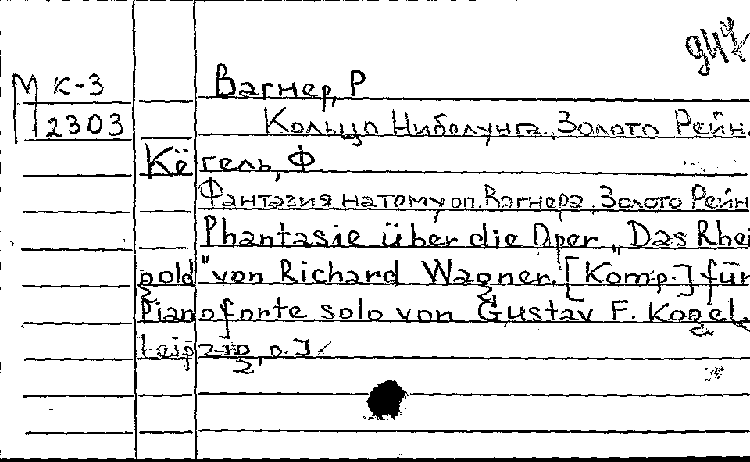 947
М К-3
Вагнер, Р
12303
Кольцо Нибелунга. Золото Рейн
Кёгель, Ф
Фантазия на тему оп. Вагнера. Золото Рейн
Phantasie über die Oper „Das Rhei
gold" von Richard Wagner. [Komp.] für
Pianoforte solo von Gustav F. Kogel
Leipzig, o. J.